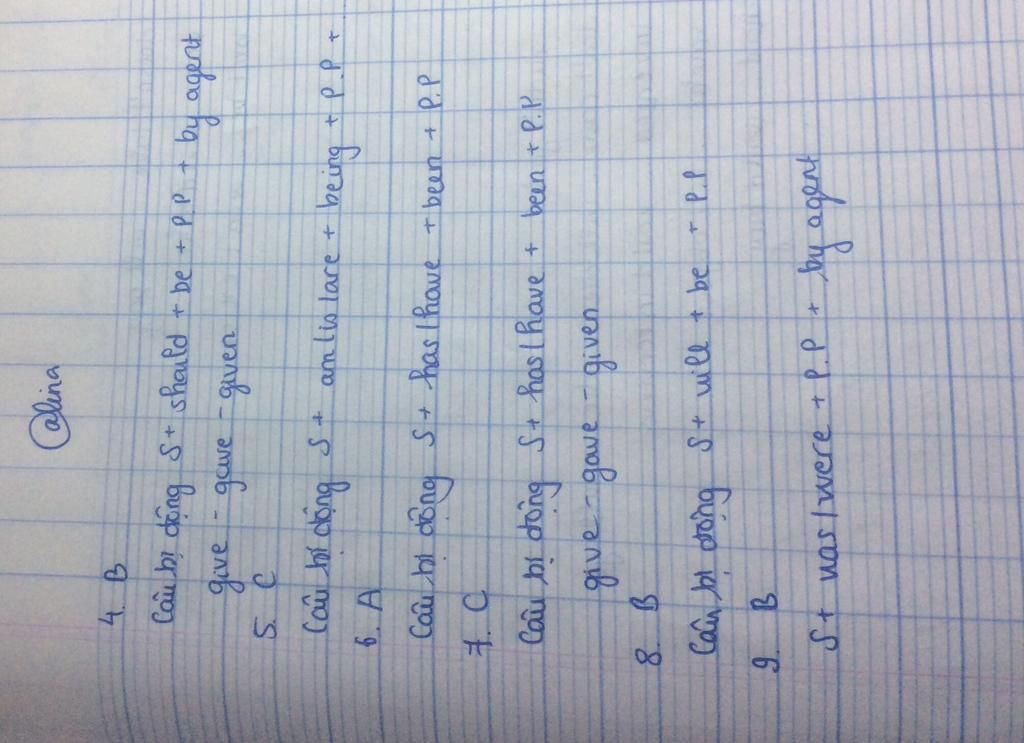 @lina
4. B
Câu bị động S+ should + be + P.P + by agent
give - gave - given
5. C
Câu bị động S + am/is/are + being + P.P +
6. A
Câu bị động S+ has/have + been + P.P
7. C
Câu bị động S+ has/have + been + P.P
give - gave - given
8. B
Câu bị động S+ will + be + P.P
9. B
S+ was/were + P.P + by agent